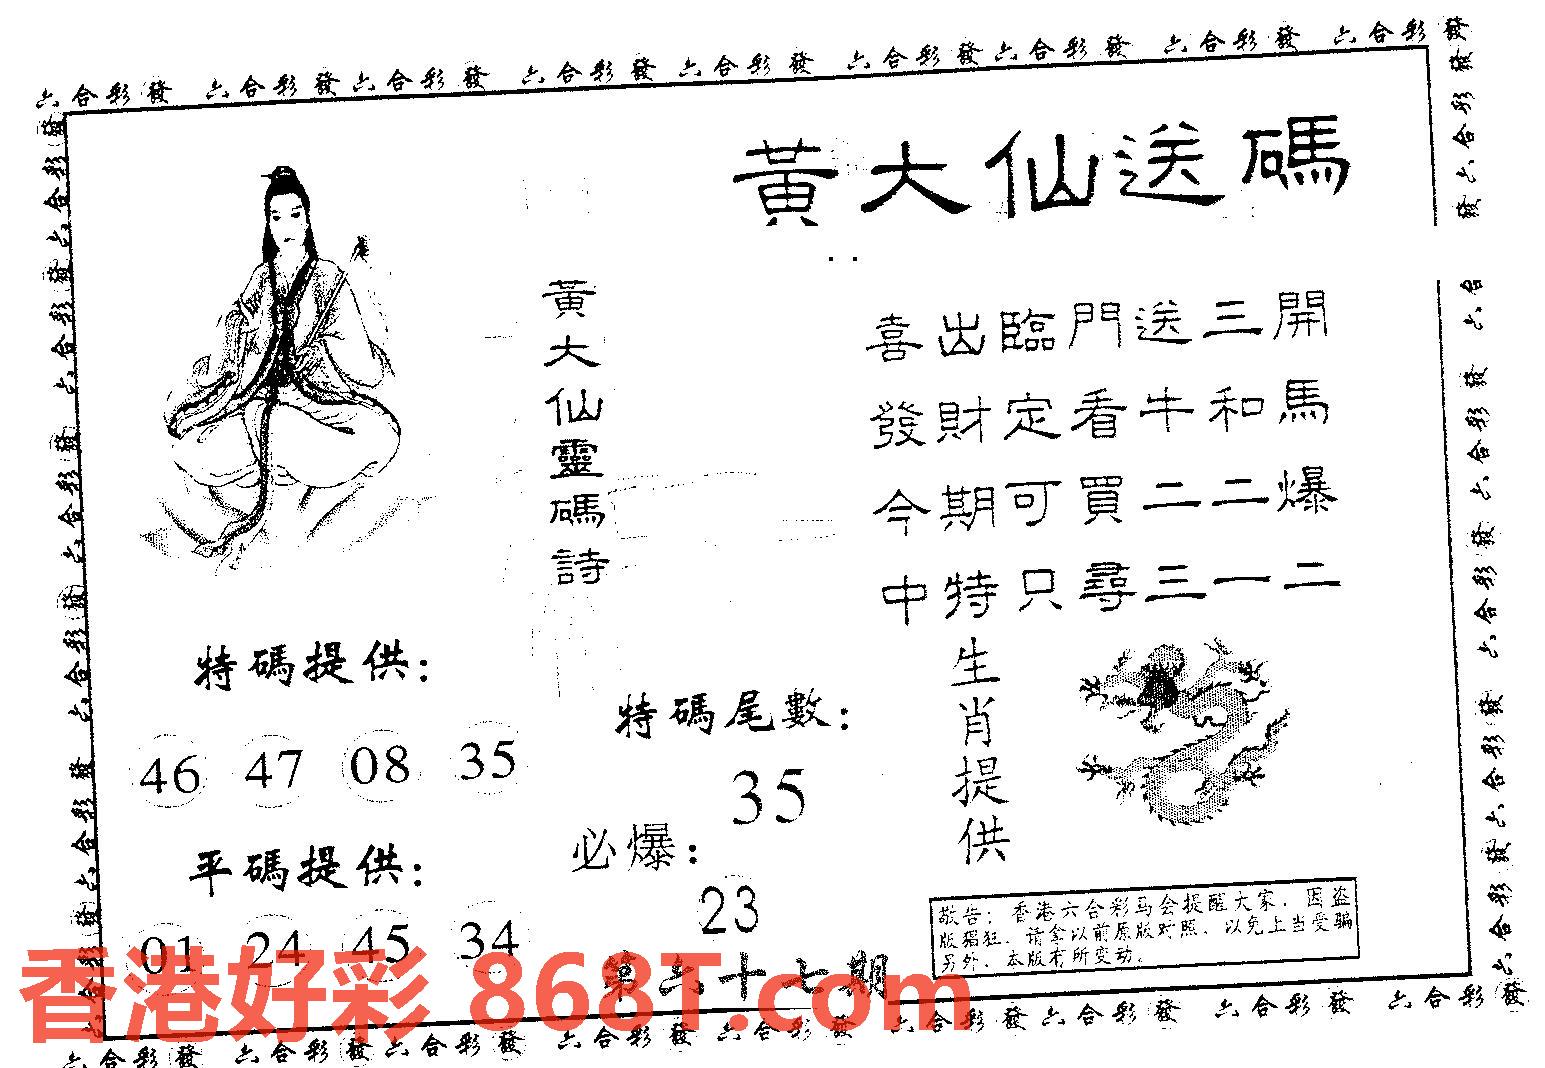 六合彩發 六合彩發 六合彩發 六合彩發 六合彩發 六合彩發 六合彩發 六合彩發 六合彩發
黃大仙送碼
黃大仙靈碼詩
喜出臨門送三開
發財定看牛和馬
今期可買二二爆
中特只尋三一二
特碼提供：
46 47 08 35
平碼提供：
01 24 45 34
特碼尾數：
35
必爆：
23
第六十七期
生肖提供
敬告：香港六合彩马会提醒大家．因盗
版猖狂．请拿以前原版对照．以免上当受骗
另外．本版有所变动．
香港好彩 868T.com
六合彩發 六合彩發 六合彩發 六合彩發 六合彩發 六合彩發 六合彩發 六合彩發 六合彩發